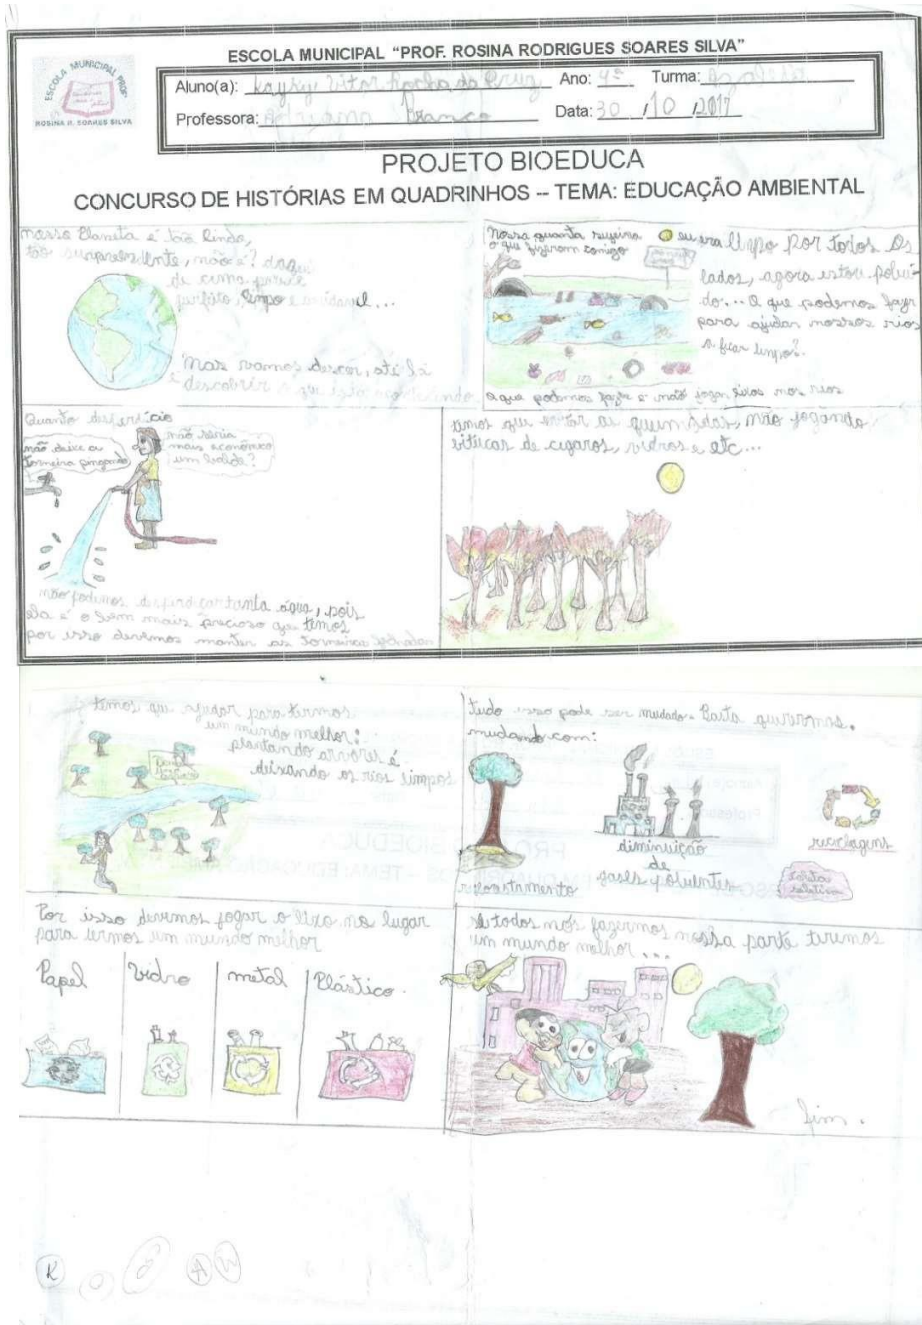 ESCOLA MUNICIPAL PROFª
ROSINA R. SOARES SILVA
ESCOLA MUNICIPAL “PROF. ROSINA RODRIGUES SOARES SILVA”
Aluno(a): Vitor Rocha da Ano: 4º Turma:
Professora: Branco Data: 30 / 10 / 2017
PROJETO BIOEDUCA
CONCURSO DE HISTÓRIAS EM QUADRINHOS -- TEMA: EDUCAÇÃO AMBIENTAL
nosso Planeta é tão lindo,
tão não é? daqui
de cima parece
perfeito, limpo e
Mas vamos descer, até lá
e descobrir o que está
Nossa quanta
o que fizeram comigo
eu era limpo por todos os
lados, agora estou polui-
do... O que podemos fazer
para ajudar nossos rios
a ficar limpo?
o que podemos fazer e não jogar lixos nos rios
Quanto
não deixe a
torneira pingando
não seria
mais econômico
um balde?
não podemos tanta água, pois
ela é o bem mais precioso que temos
por isso devemos manter as torneiras
temos que evitar as queimadas, não jogando
bitucas de cigaros, vidros e etc...
temos que ajudar para termos
um mundo melhor:
plantando arvores é
deixando os rios limpos
tudo isso pode ser mudado. Basta quisermos.
mudando com:
reflorestamento
diminuição
de
gases poluentes
reciclagens
coleta
seletiva
Por isso devemos jogar o lixo no lugar
para termos um mundo melhor
Papel
vidro
metal
Plástico.
se todos nós fazermos nossa parte tiremos
um mundo melhor ...
fim.